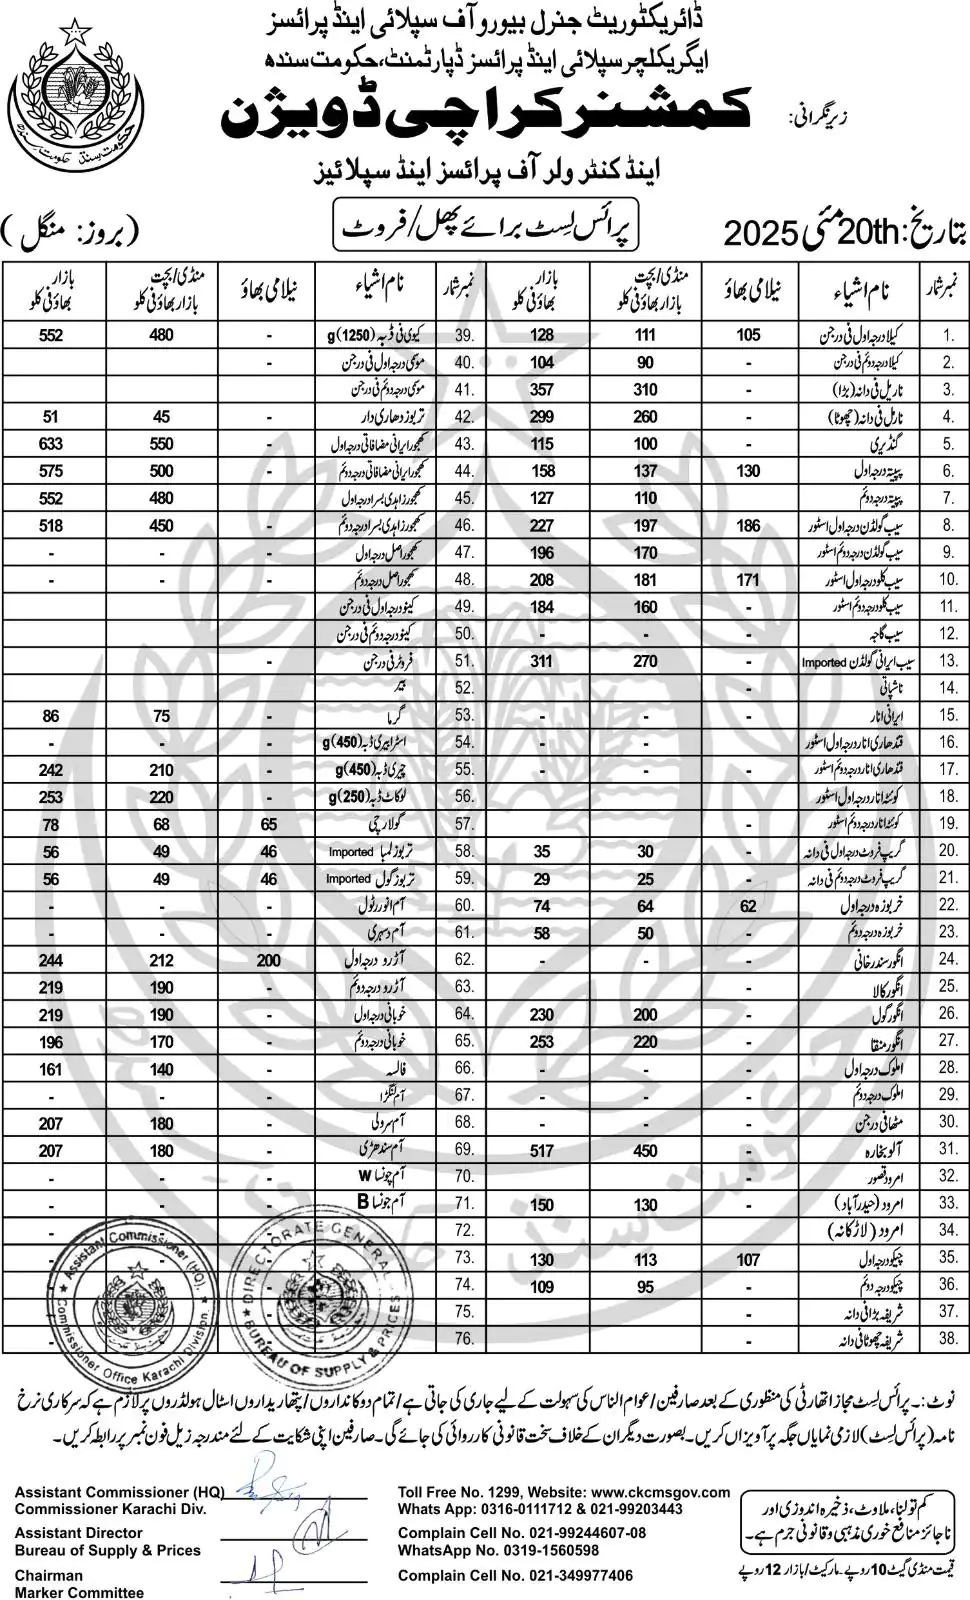 ڈائریکٹوریٹ جنرل بیورو آف سپلائی اینڈ پرائسز
ایگریکلچر سپلائی اینڈ پرائسز ڈپارٹمنٹ، حکومت سندھ
زیرنگرانی: کمشنر کراچی ڈویژن
اینڈ کنٹرولر آف پرائسز اینڈ سپلائیز
بتاریخ: 20th مئی 2025 پرائس لسٹ برائے پھل/فروٹ (بروز: منگل)
نمبر شمار نام اشیاء نیلامی بھاؤ منڈی/بچت بازار بھاؤ فی کلو بازار بھاؤ فی کلو نمبر شمار نام اشیاء نیلامی بھاؤ منڈی/بچت بازار بھاؤ فی کلو بازار بھاؤ فی کلو
1. کیلا درجہ اول فی درجن 105 111 128 39. کیوی فی ڈبہ (1250)g - 480 552
2. کیلا درجہ دوئم فی درجن - 90 104 40. موسمی درجہ اول فی درجن -
3. ناریل فی دانہ (بڑا) 310 357 41. موسمی درجہ دوئم فی درجن
4. ناریل فی دانہ (چھوٹا) - 260 299 42. تربوز دھاری دار - 45 51
5. گنڈیری - 100 115 43. کھجور ایرانی مضافاتی درجہ اول - 550 633
6. پپیتہ درجہ اول 130 137 158 44. کھجور ایرانی مضافاتی درجہ دوئم - 500 575
7. پپیتہ درجہ دوئم - 110 127 45. کھجور زاہدی بسرا درجہ اول - 480 552
8. سیب گولڈن درجہ اول اسٹور 186 197 227 46. کھجور زاہدی بسرا درجہ دوئم - 450 518
9. سیب گولڈن درجہ دوئم اسٹور - 170 196 47. کھجور اصل درجہ اول - - -
10. سیب کلو درجہ اول اسٹور 171 181 208 48. کھجور اصل درجہ دوئم - - -
11. سیب کلو درجہ دوئم اسٹور - 160 184 49. کینو درجہ اول فی درجن -
12. سیب گاجہ - - - 50. کینو درجہ دوئم فی درجن -
13. سیب ایرانی گولڈن Imported - 270 311 51. فروٹر فی درجن -
14. ناشپاتی - 52. بیر
15. ایرانی انار - - - 53. گرما - 75 86
16. قندھاری انار درجہ اول اسٹور - - 54. اسٹرابیری ڈبہ (450)g - - -
17. قندھاری انار درجہ دوئم اسٹور - - - 55. چیری ڈبہ (450)g - 210 242
18. کوئٹہ انار درجہ اول اسٹور 56. لوکاٹ ڈبہ (250)g - 220 253
19. کوئٹہ انار درجہ دوئم اسٹور - 57. گولارچی 65 68 78
20. گریپ فروٹ درجہ اول فی دانہ - 30 35 58. تربوز لمبا Imported 46 49 56
21. گریپ فروٹ درجہ دوئم فی دانہ - 25 29 59. تربوز گول Imported 46 49 56
22. خربوزہ درجہ اول 62 64 74 60. آم انور رٹول - - -
23. خربوزہ درجہ دوئم - 50 58 61. آم دسہری - - -
24. انگور سندرخانی - - - 62. آڑو درجہ اول 200 212 244
25. انگور کالا 63. آڑو درجہ دوئم - 190 219
26. انگور گول - 200 230 64. خوبانی درجہ اول - 190 219
27. انگور منقا - 220 253 65. خوبانی درجہ دوئم - 170 196
28. املوک درجہ اول - - - 66. فالسہ - 140 161
29. املوک درجہ دوئم - 67. آم لنگڑا - - -
30. مٹھا فی درجن - 68. آم سرولی - 180 207
31. آلو بخارہ - 450 517 69. آم سندھڑی - 180 207
32. امرود قصور - 70. آم چونسا W - - -
33. امرود (حیدرآباد) - 130 150 71. آم چونسا B - - -
34. امرود (لاڑکانہ) 72. -
35. چیکو درجہ اول 107 113 130 73. -
36. چیکو درجہ دوئم - 95 109 74. -
37. شریفہ بڑا فی دانہ - 75.
38. شریفہ چھوٹا فی دانہ - 76. -
Assistant Commissioner (HQ)
Commissioner Office Karachi Division.
DIRECTORATE GENERAL
BUREAU OF SUPPLY & PRICES
نوٹ:۔ پرائس لسٹ مجاز اتھارٹی کی منظوری کے بعد صارفین/عوام الناس کی سہولت کے لیے جاری کی جاتی ہے/تمام دوکانداروں/پتھاریداروں اسٹال ہولڈروں پر لازم ہے کہ سرکاری نرخ
نامہ (پرائس لسٹ) لازمی نمایاں جگہ پر آویزاں کریں۔ بصورت دیگر ان کے خلاف سخت قانونی کارروائی کی جائے گی۔ صارفین اپنی شکایت کے لئے مندرجہ زیل فون نمبر پر رابطہ کریں۔
Assistant Commissioner (HQ)
Commissioner Karachi Div.
Assistant Director
Bureau of Supply & Prices
Chairman
Marker Committee
Toll Free No. 1299, Website: www.ckcmsgov.com
Whats App: 0316-0111712 & 021-99203443
Complain Cell No. 021-99244607-08
WhatsApp No. 0319-1560598
Complain Cell No. 021-349977406
کم تولنا، ملاوٹ، ذخیرہ اندوزی اور
ناجائز منافع خوری مذہبی و قانونی جرم ہے۔
قیمت منڈی گیٹ 10 روپے۔ مارکیٹ/بازار 12 روپے